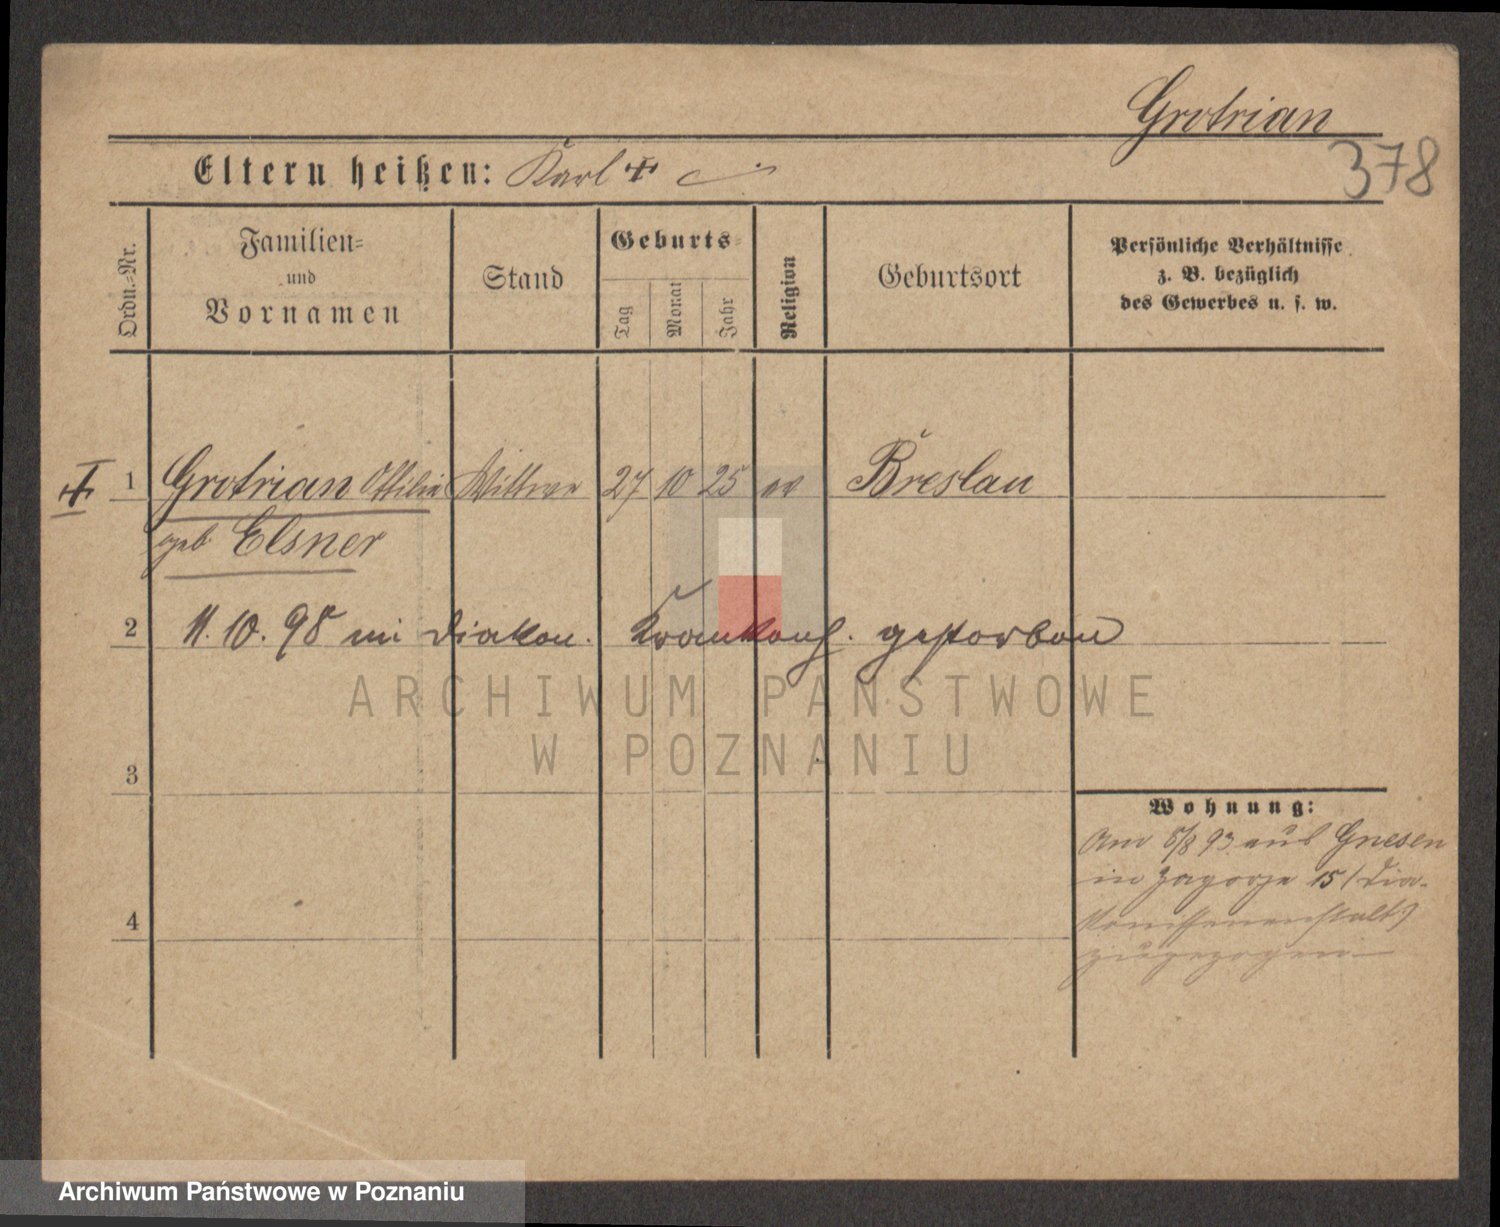 Grotrian
378
Eltern heißen: Karl +
Ordn.-Nr.
Familien-
und
Vornamen
Stand
Geburts-
Tag
Monat
Jahr
Religion
Geburtsort
Persönliche Verhältnisse
z. B. bezüglich
des Gewerbes u. s. w.
1 Grotrian Ottilie Wittwe 27 10 25 ev Breslau
geb Elsner
2 11. 10. 98 im Diakon. Krankenh. gestorben
ARCHIWUM PAŃSTWOWE
W POZNANIU
3
Wohnung:
Am 5/8 93 aus Gnesen
in Zagorze 15 (Dia-
konissenanstalt)
zugezogen
4
Archiwum Państwowe w Poznaniu